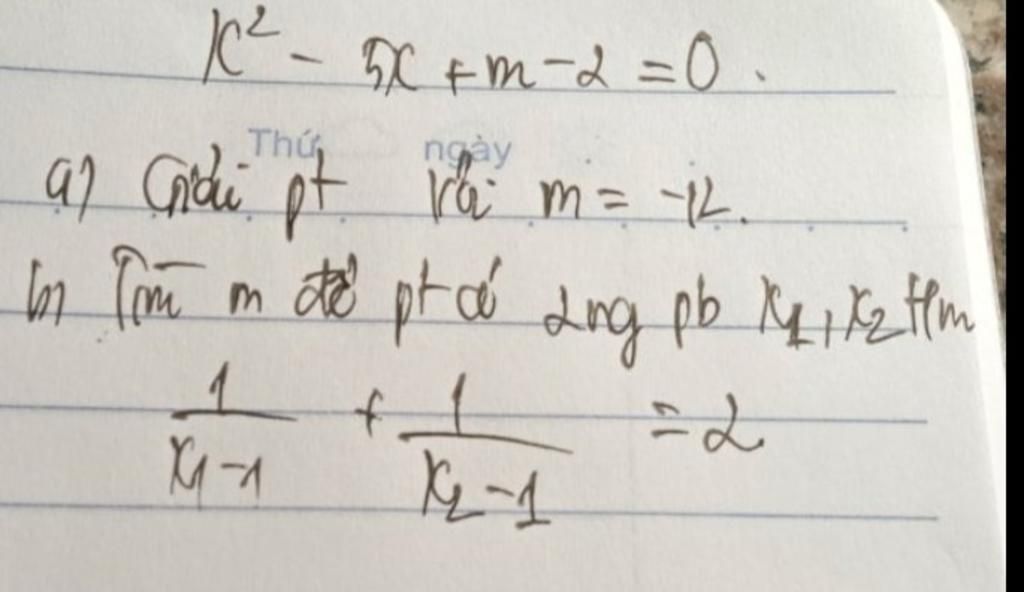 x² - 5x + m - 2 = 0.
Thứ ngày
a) Giải pt với m = -12.
b) Tìm m để pt có 2ng pb x₁, x₂ t/m
1/(x₁ - 1) + 1/(x₂ - 1) = 2